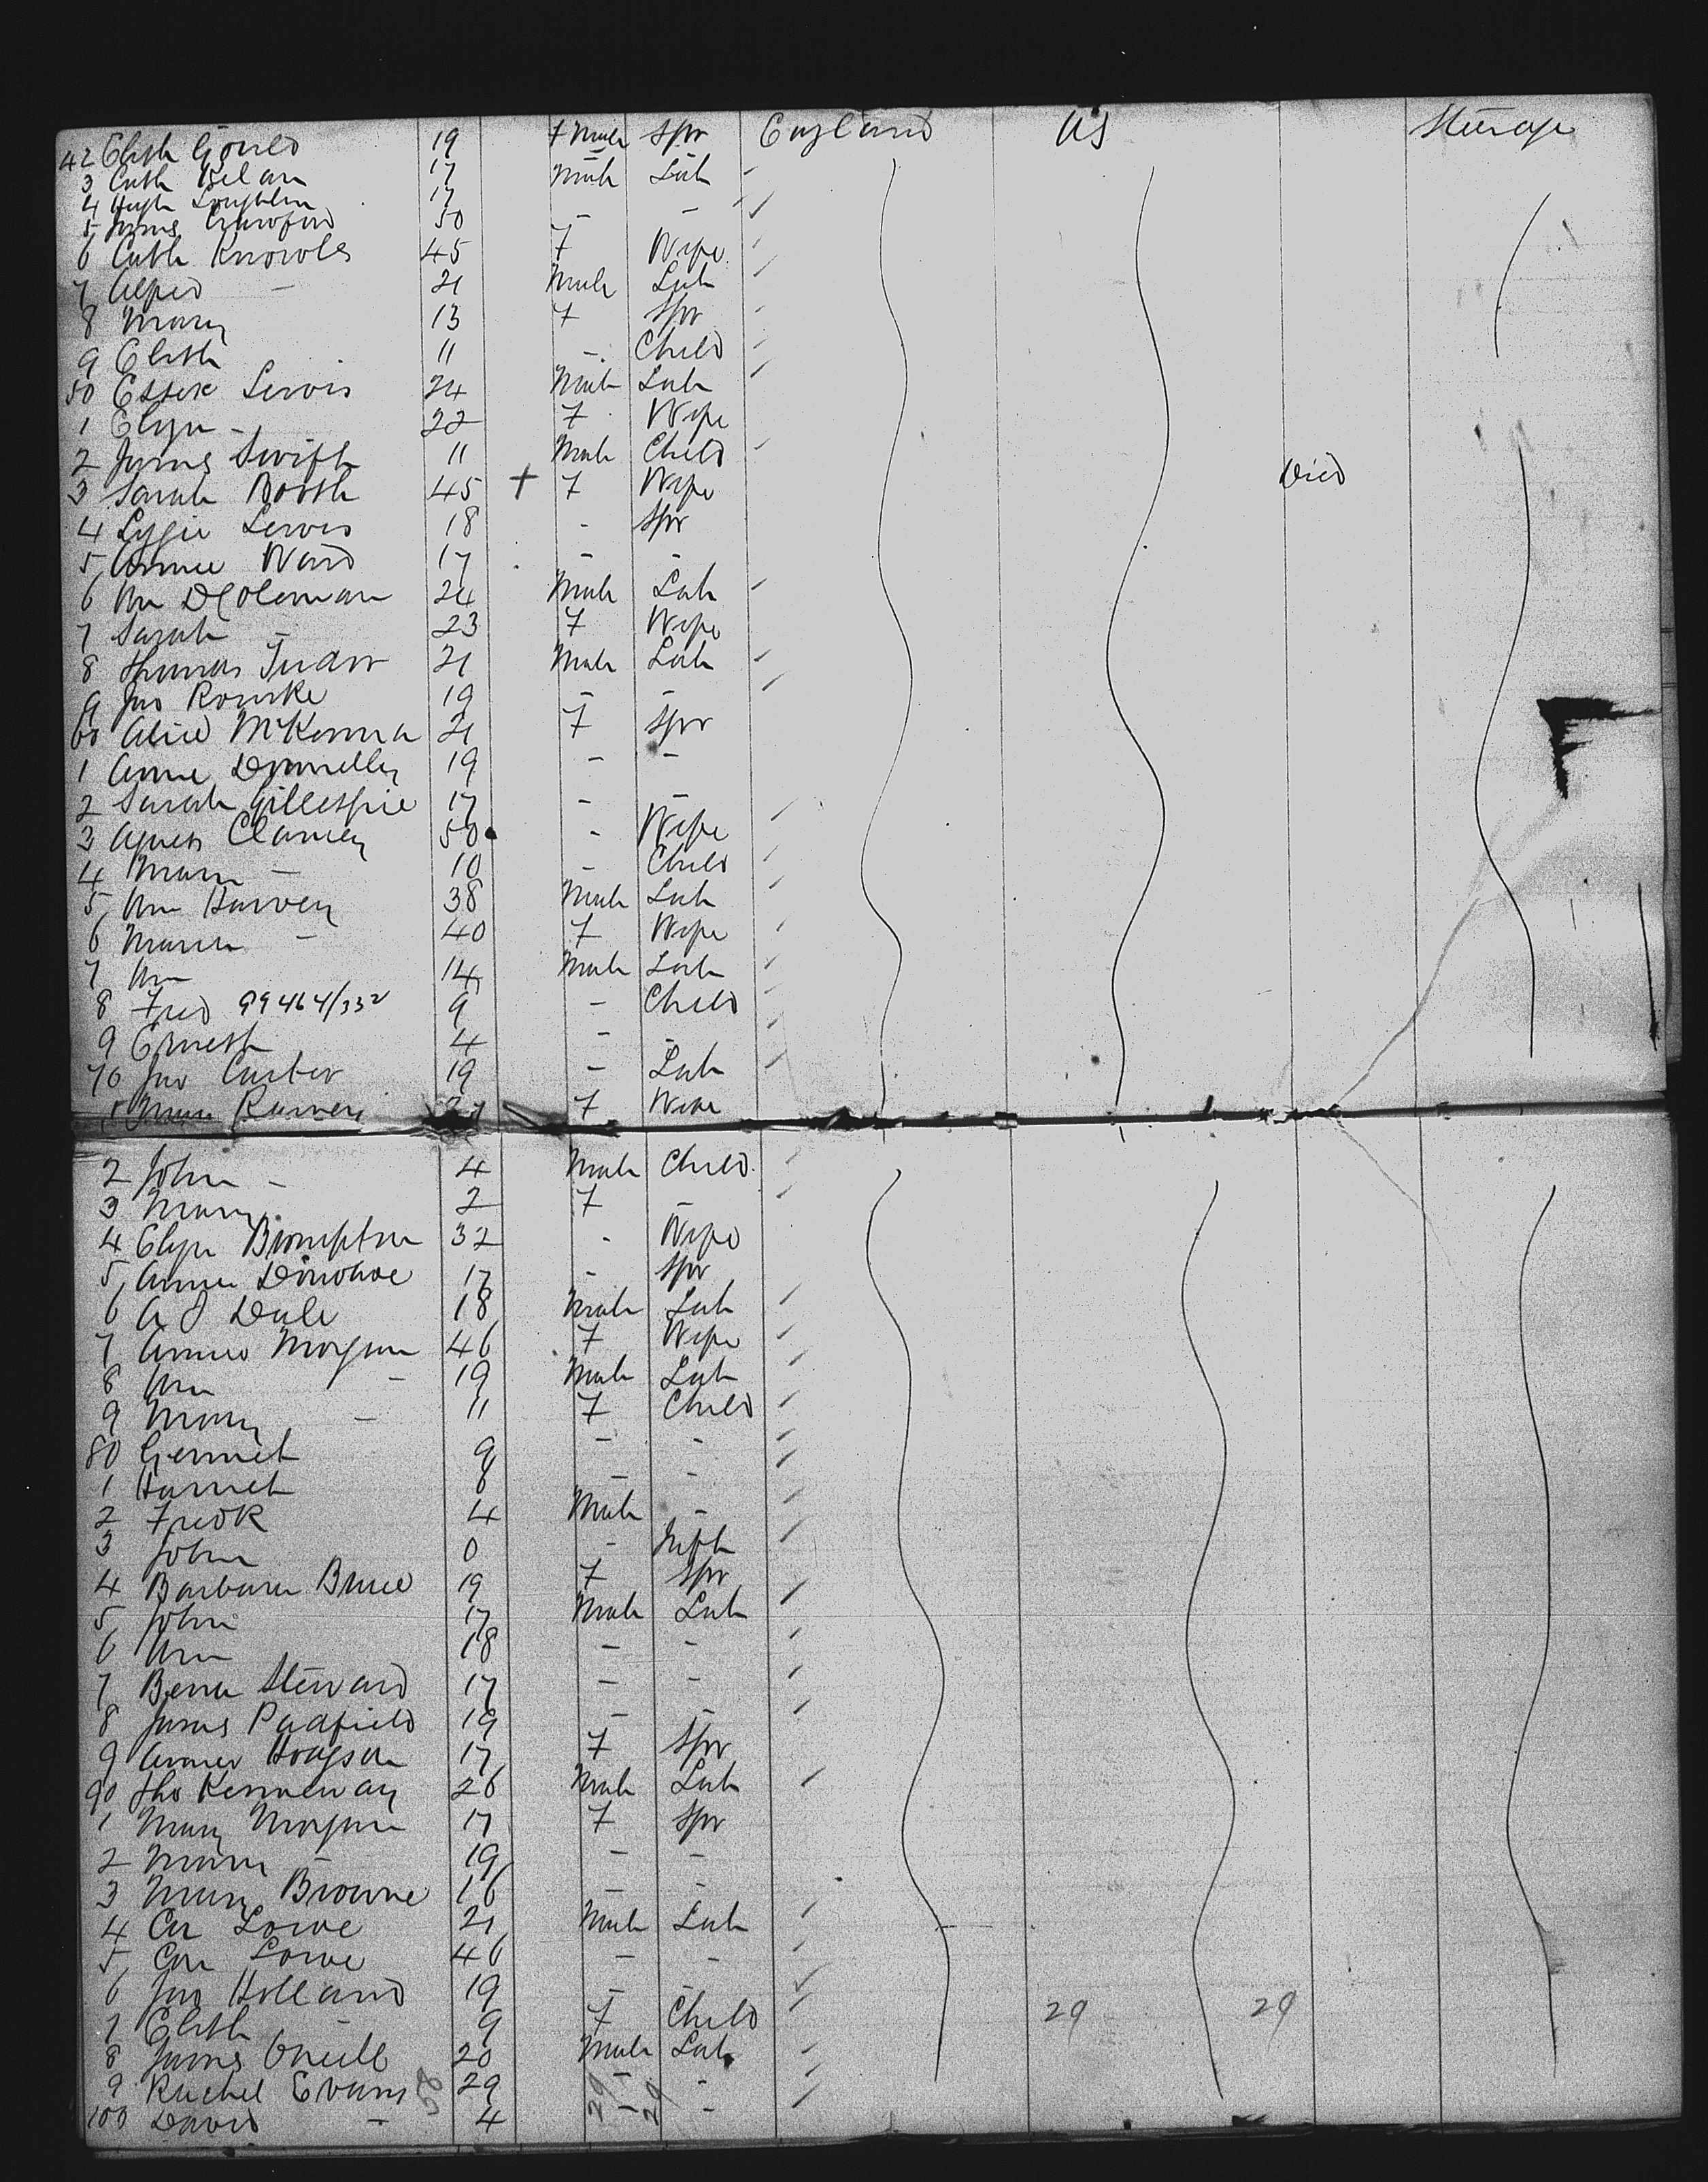 42 Elisth Gould 19 Fmale Spr England US Steerage
3 Cath 17 Male Lab
4 Hugh Loughlin 17
5 James Crawford 50 - -
6 Cath Knowles 45 F Wife
7 Alfred - 21 Male Lab
8 Mary 13 F Spr
9 Elisth 11 - Child
50 Essex Lewis 24 Male Lab
1 Eliza - 22 F Wife
2 James Swift 11 Male Child
3 Sarah Booth 45 + F Wife Died
4 Lizzie Lewis 18 - Spr
5 Annie Ward 17 - -
6 Wm D Coleman 24 Male Lab
7 Sarah - 23 F Wife
8 Thomas Tudor 21 Male Lab
9 Jno Rourke 19 - -
60 Alice McKenna 21 F Spr
1 Annie Donnelly 19 - -
2 Sarah Gillespie 17 - -
3 Agnes Clancey 50 - Wife
4 Mary - 10 - Child
5 Wm Harvey 38 Male Lab
6 Maria - 40 F Wife
7 Wm 14 Male Lab
8 Fred 99464/332 9 - Child
9 Ernest 4 - -
70 Jno Carter 19 - Lab
1 Mary F Wife
2 John - 4 Male Child
3 Mary 2 F -
4 Eliza Brompton 32 - Wife
5 Annie Donohoe 17 - Spr
6 A J Dale 18 Male Lab
7 Annie Morgan 46 F Wife
8 Wm - 19 Male Lab
9 Mary - 11 F Child
80 9 - -
1 Harriet 8 - -
2 Fredk 4 Male -
3 John 0 - Infth
4 Barbara Bruce 19 F Spr
5 John 17 Male Lab
6 Wm 18 - -
7 Steward 17 - -
8 James Padfield 19 - -
9 Annie Hodgson 17 F Spr
90 Tho Kennaway 26 Male Lab
1 Mary Morgan 17 F Spr
2 - 19 - -
3 Mary Browne 16 - -
4 Lowe 21 Male Lab
5 Lowe 46 - -
6 Jno Holland 19 - -
7 Elisth - 9 F Child 29 29
8 James Oneill 20 Male Lab
9 Rachel Evans 58 29 - -
100 David - 4 29 - 29 -